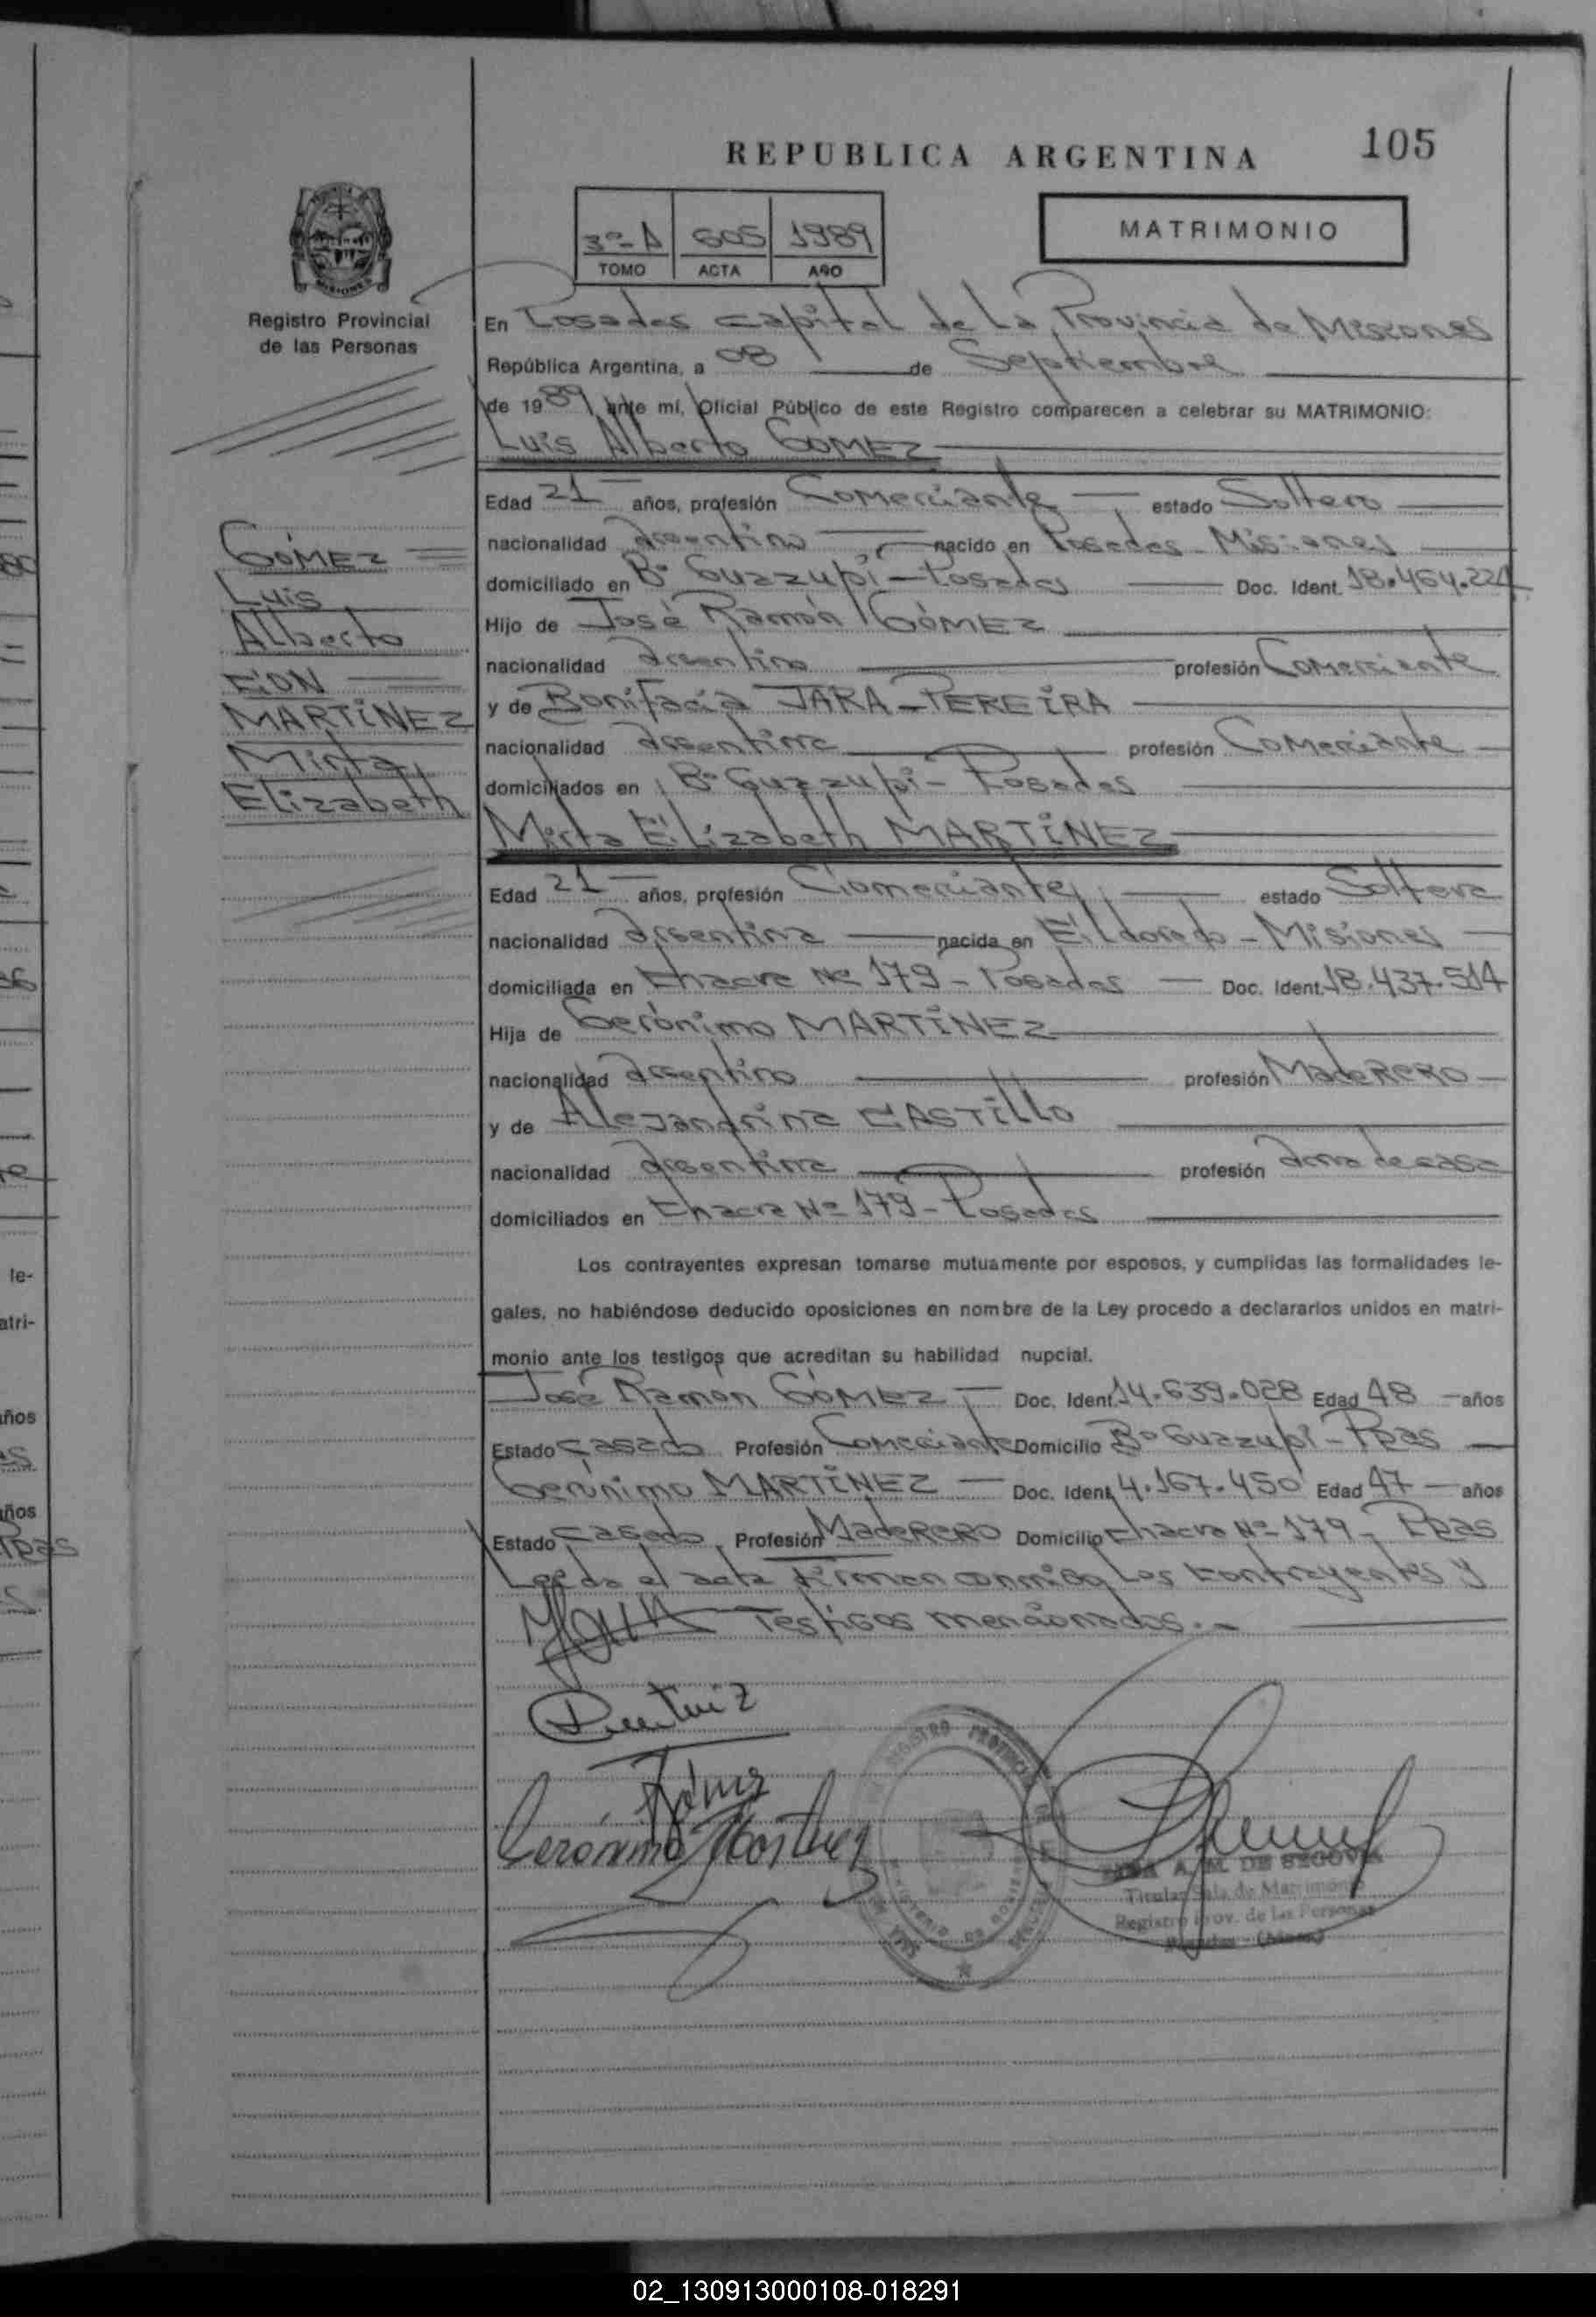 105
REPUBLICA ARGENTINA
3º-A 605 1989
TOMO ACTA AÑO
MATRIMONIO
MISIONES
Registro Provincial
de las Personas
En Posadas Capital de La Provincia de Misiones
República Argentina, a 08 de Septiembre
de 1989, ante mí, Oficial Público de este Registro comparecen a celebrar su MATRIMONIO:
Luis Alberto GOMEZ
Edad 21 años, profesión Comerciante estado Soltero
nacionalidad argentino nacido en Posadas - Misiones
domiciliado en Bº Guazupí - Posadas Doc. Ident. 18.464.221
Hijo de José Ramón GÓMEZ
nacionalidad argentino profesión Comerciante
y de Bonifacia JARA - PEREIRA
nacionalidad argentina profesión Comerciante
domiciliados en Bº Guazupí - Posadas
Mirta Elizabeth MARTÍNEZ
Edad 21 años, profesión Comerciante estado Soltera
nacionalidad argentina nacida en Eldorado - Misiones
domiciliada en Chacra Nº 179 - Posadas Doc. Ident. 18.437.514
Hija de Gerónimo MARTÍNEZ
nacionalidad argentino profesión Maderero
y de Alejandrina CASTILLO
nacionalidad argentina profesión ama de casa
domiciliados en Chacra Nº 179 - Posadas
Los contrayentes expresan tomarse mutuamente por esposos, y cumplidas las formalidades le-
gales, no habiéndose deducido oposiciones en nombre de la Ley procedo a declararlos unidos en matri-
monio ante los testigos que acreditan su habilidad nupcial.
José Ramón GÓMEZ - Doc. Ident. 14.639.028 Edad 48 - años
Estado Casado Profesión Comerciante Domicilio Bº Guazupí - Pdas
Gerónimo MARTÍNEZ - Doc. Ident. 4.167.450 Edad 47 - años
Estado Casado Profesión Maderero Domicilio Chacra Nº 179 - Pdas
Leída el acta firman conmigo Los contrayentes y
Testigos mencionados.-
GÓMEZ
Luis
Alberto
CON
MARTÍNEZ
Mirta
Elizabeth
Gerónimo Martínez
A. M. DE SEGOVIA
Titular Sala de Matrimonio
Registro Prov. de las Personas
Posadas - (Mnes)
le-
atri-
años
años
Pdas
02_130913000108-018291